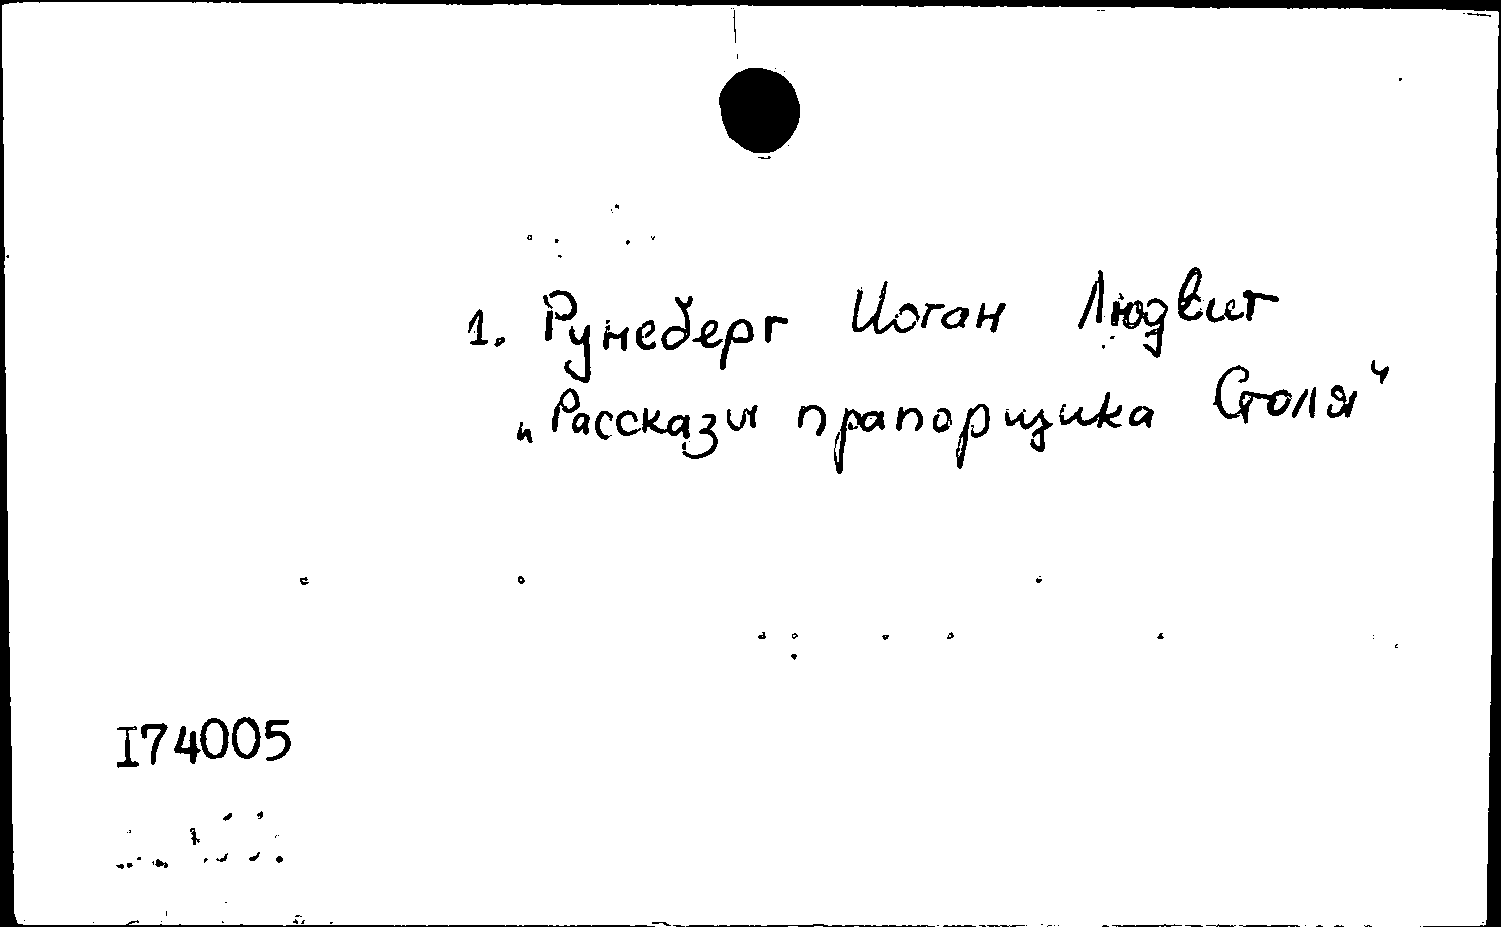 1. Рунеберг Иоган Людвиг
„Рассказы прапорщика Столя"
I74005